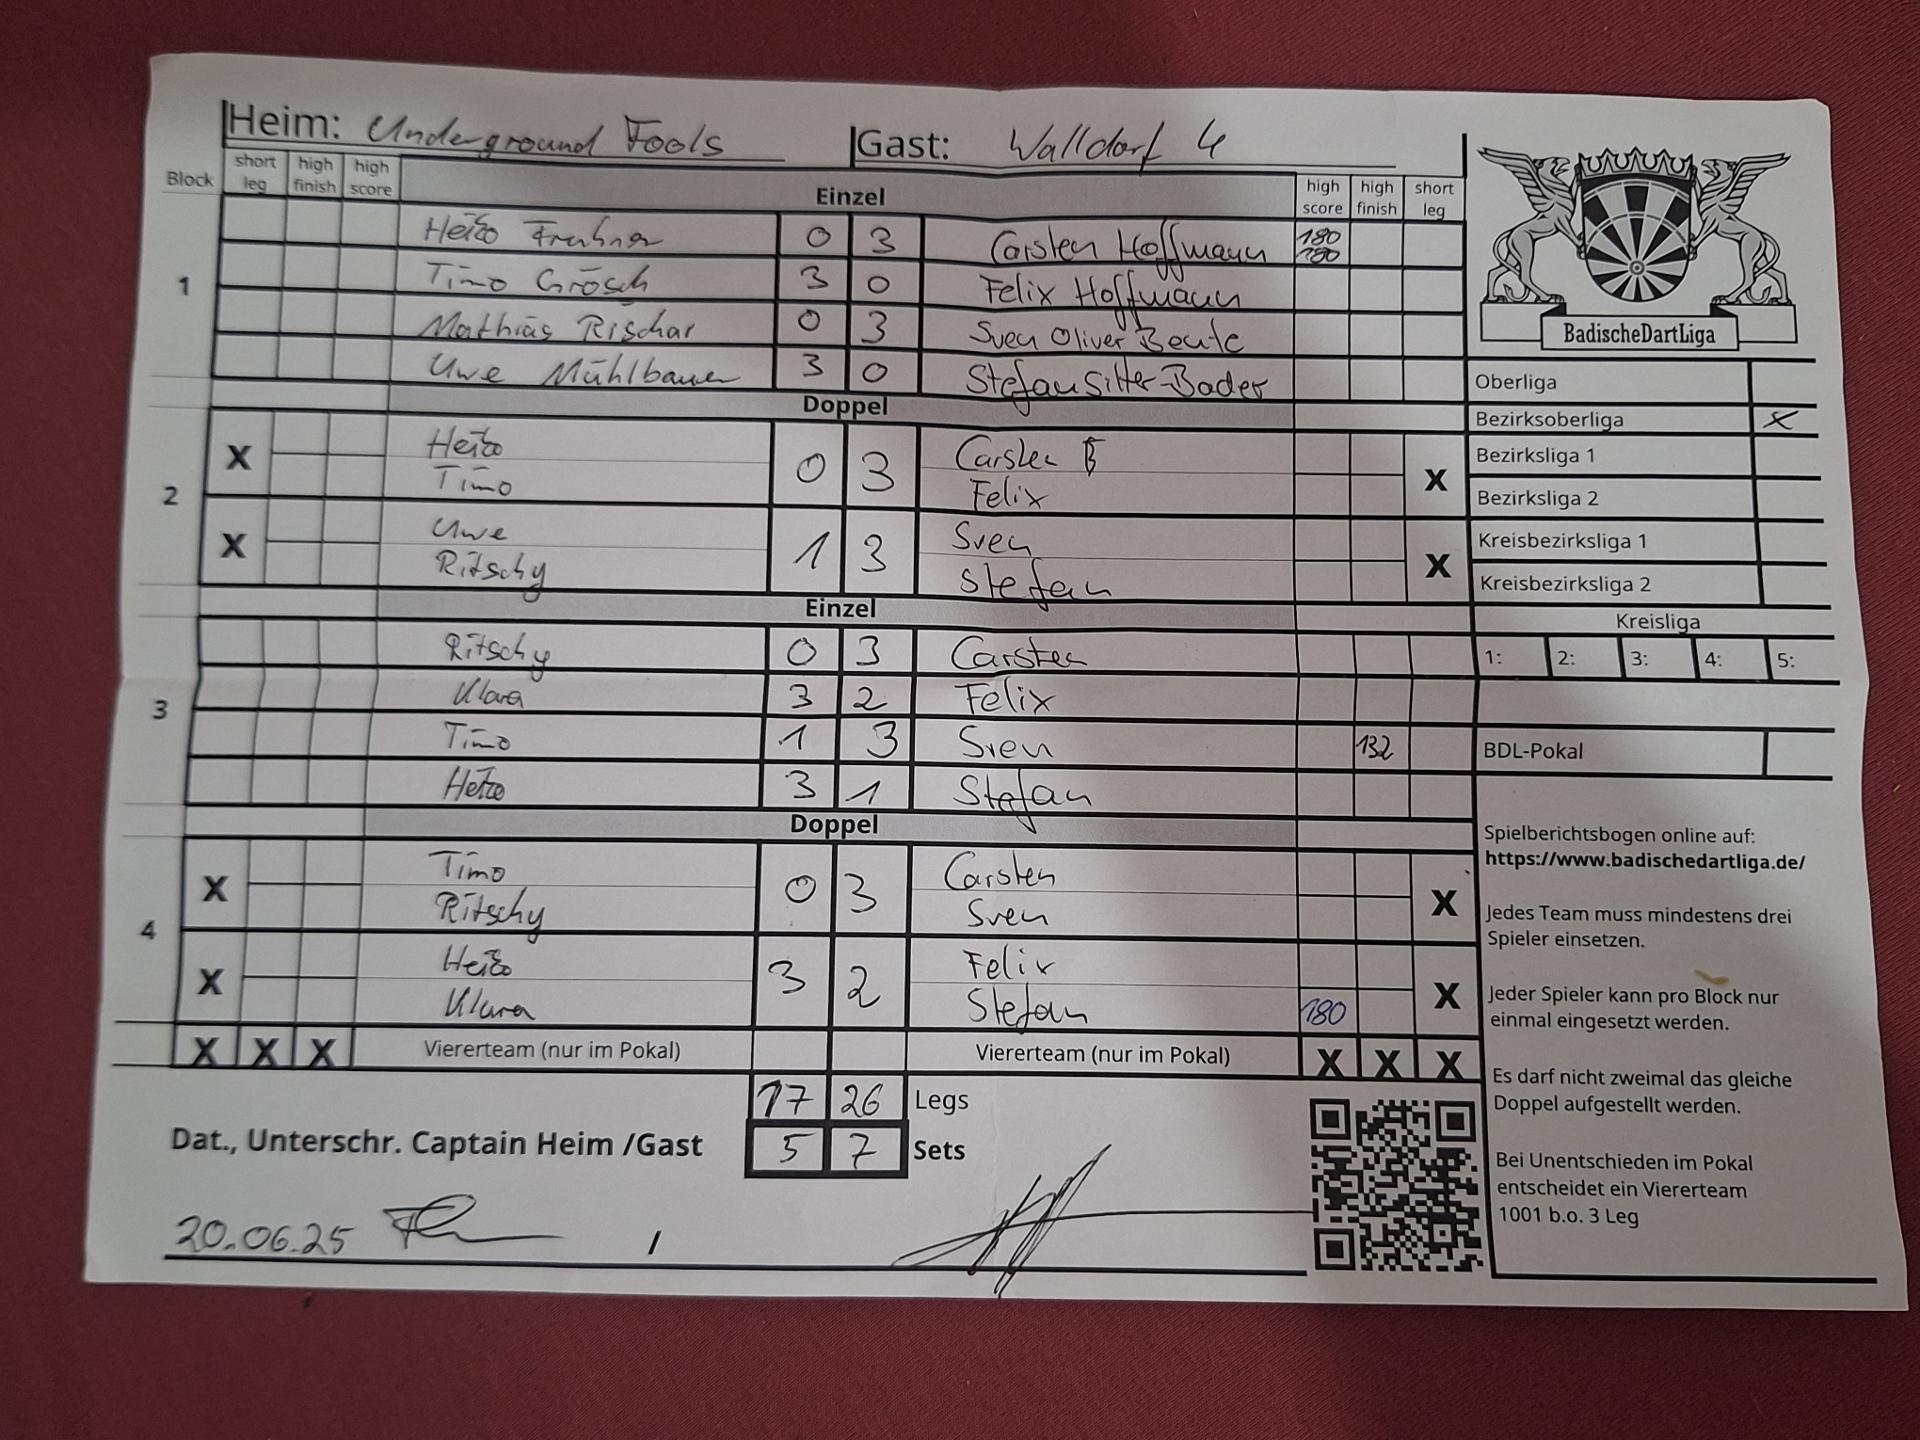 Heim: Underground Fools Gast: Walldorf 4
Block short leg high finish high score Einzel high score high finish short leg
1
Heiko 0 3 Carsten Hoffmann 180 180
Timo Grösch 3 0 Felix Hoffmann
Mathias Rischar 0 3 Sven Oliver Beule
Uwe Mühlbauer 3 0 Stefan Sitter-Bader
Doppel
2
X Heiko 0 3 Carsten X
Timo Felix
X Uwe 1 3 Sven X
Ritschy Stefan
Einzel
3
Ritschy 0 3 Carsten
Klara 3 2 Felix
Timo 1 3 Sven 132
Heiko 3 1 Stefan
Doppel
4
X Timo 0 3 Carsten X
Ritschy Sven
X Heiko 3 2 Felix X
Klara Stefan 180
X X X Viererteam (nur im Pokal) Viererteam (nur im Pokal) X X X
17 26 Legs
Dat., Unterschr. Captain Heim /Gast 5 7 Sets
20.06.25 /
BadischeDartLiga
Oberliga
Bezirksoberliga X
Bezirksliga 1
Bezirksliga 2
Kreisbezirksliga 1
Kreisbezirksliga 2
Kreisliga
1: 2: 3: 4: 5:
BDL-Pokal
Spielberichtsbogen online auf:
https://www.badischedartliga.de/
Jedes Team muss mindestens drei
Spieler einsetzen.
Jeder Spieler kann pro Block nur
einmal eingesetzt werden.
Es darf nicht zweimal das gleiche
Doppel aufgestellt werden.
Bei Unentschieden im Pokal
entscheidet ein Viererteam
1001 b.o. 3 Leg